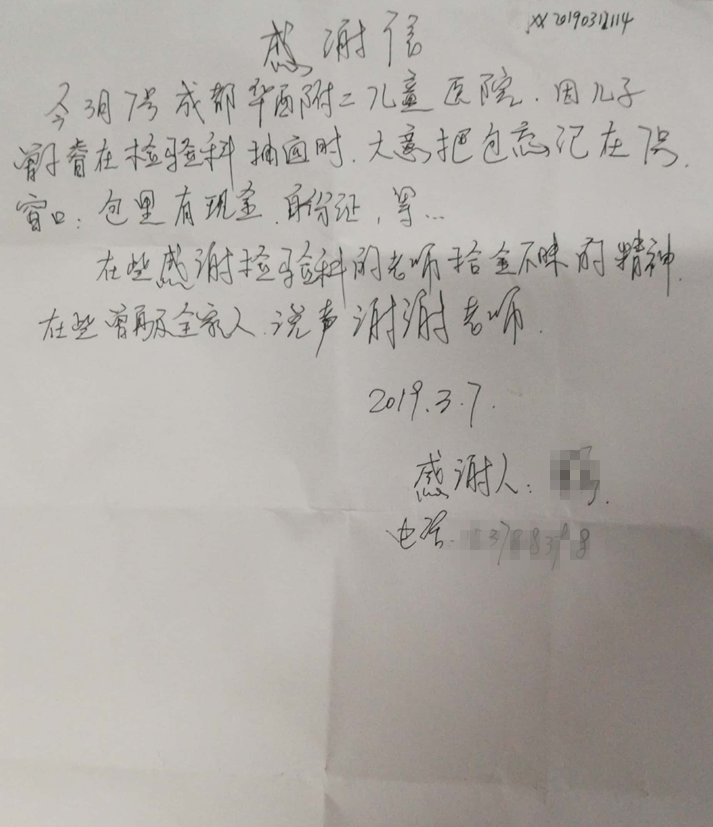 XX 20190312114
感谢信
今3月7号成都华西附二儿童医院.因儿子
在检验科抽血时.大意把包忘记在7号.
窗口:包里有现金.身份证,等...
在些感谢检验科的老师拾金不昧的精神.
在些曾再及全家人.说声谢谢老师.
2019.3.7.
感谢人:
电话.